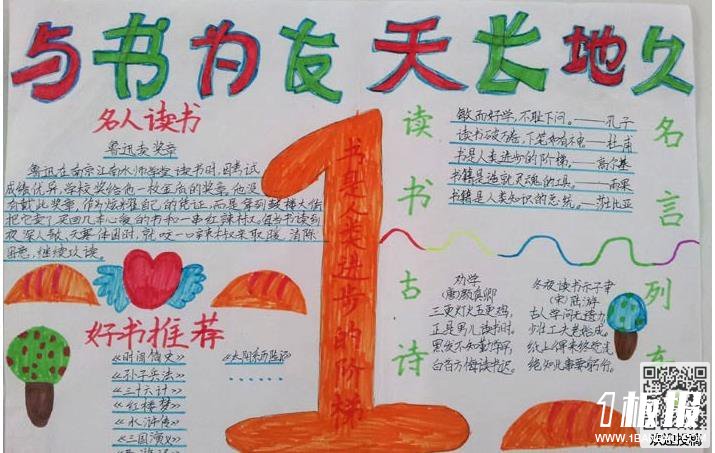 与书为友天长地久
名人读书
鲁迅卖奖章
鲁迅在南京江南水师学堂读书时,因考试
成绩优异,学校奖给他一枚金质的奖章,他没
有戴此奖章,作为炫耀自己的凭证,而是拿到鼓楼大街
把它卖了买回几本心爱的书和一串红辣椒,每当书读到
夜深人静、天寒体困时,就咬一口辣椒来取暖,消除
困意,继续攻读。
好书推荐
《时间简史》
《孙子兵法》
《三十六计》
《红楼梦》
《水浒传》
《三国演义》
书是人类进步的阶梯
1
读书古诗
敏而好学,不耻下问。——孔子
读书破万卷,下笔如有神——杜甫
书是人类进步的阶梯,——高尔基
书籍是造就灵魂的工具。——雨果
书籍是人类知识的总统。——莎比亚
名言列车
劝学
(唐)颜真卿
三更灯火五更鸡,
正是男儿读书时,
黑发不知勤学早,
白首方悔读书迟。
冬夜读书示子聿
(宋)陆游
古人学问无遗力
少壮工夫老始成。
纸上得来终觉浅
绝知此事要躬行。
1板报
欢迎投稿